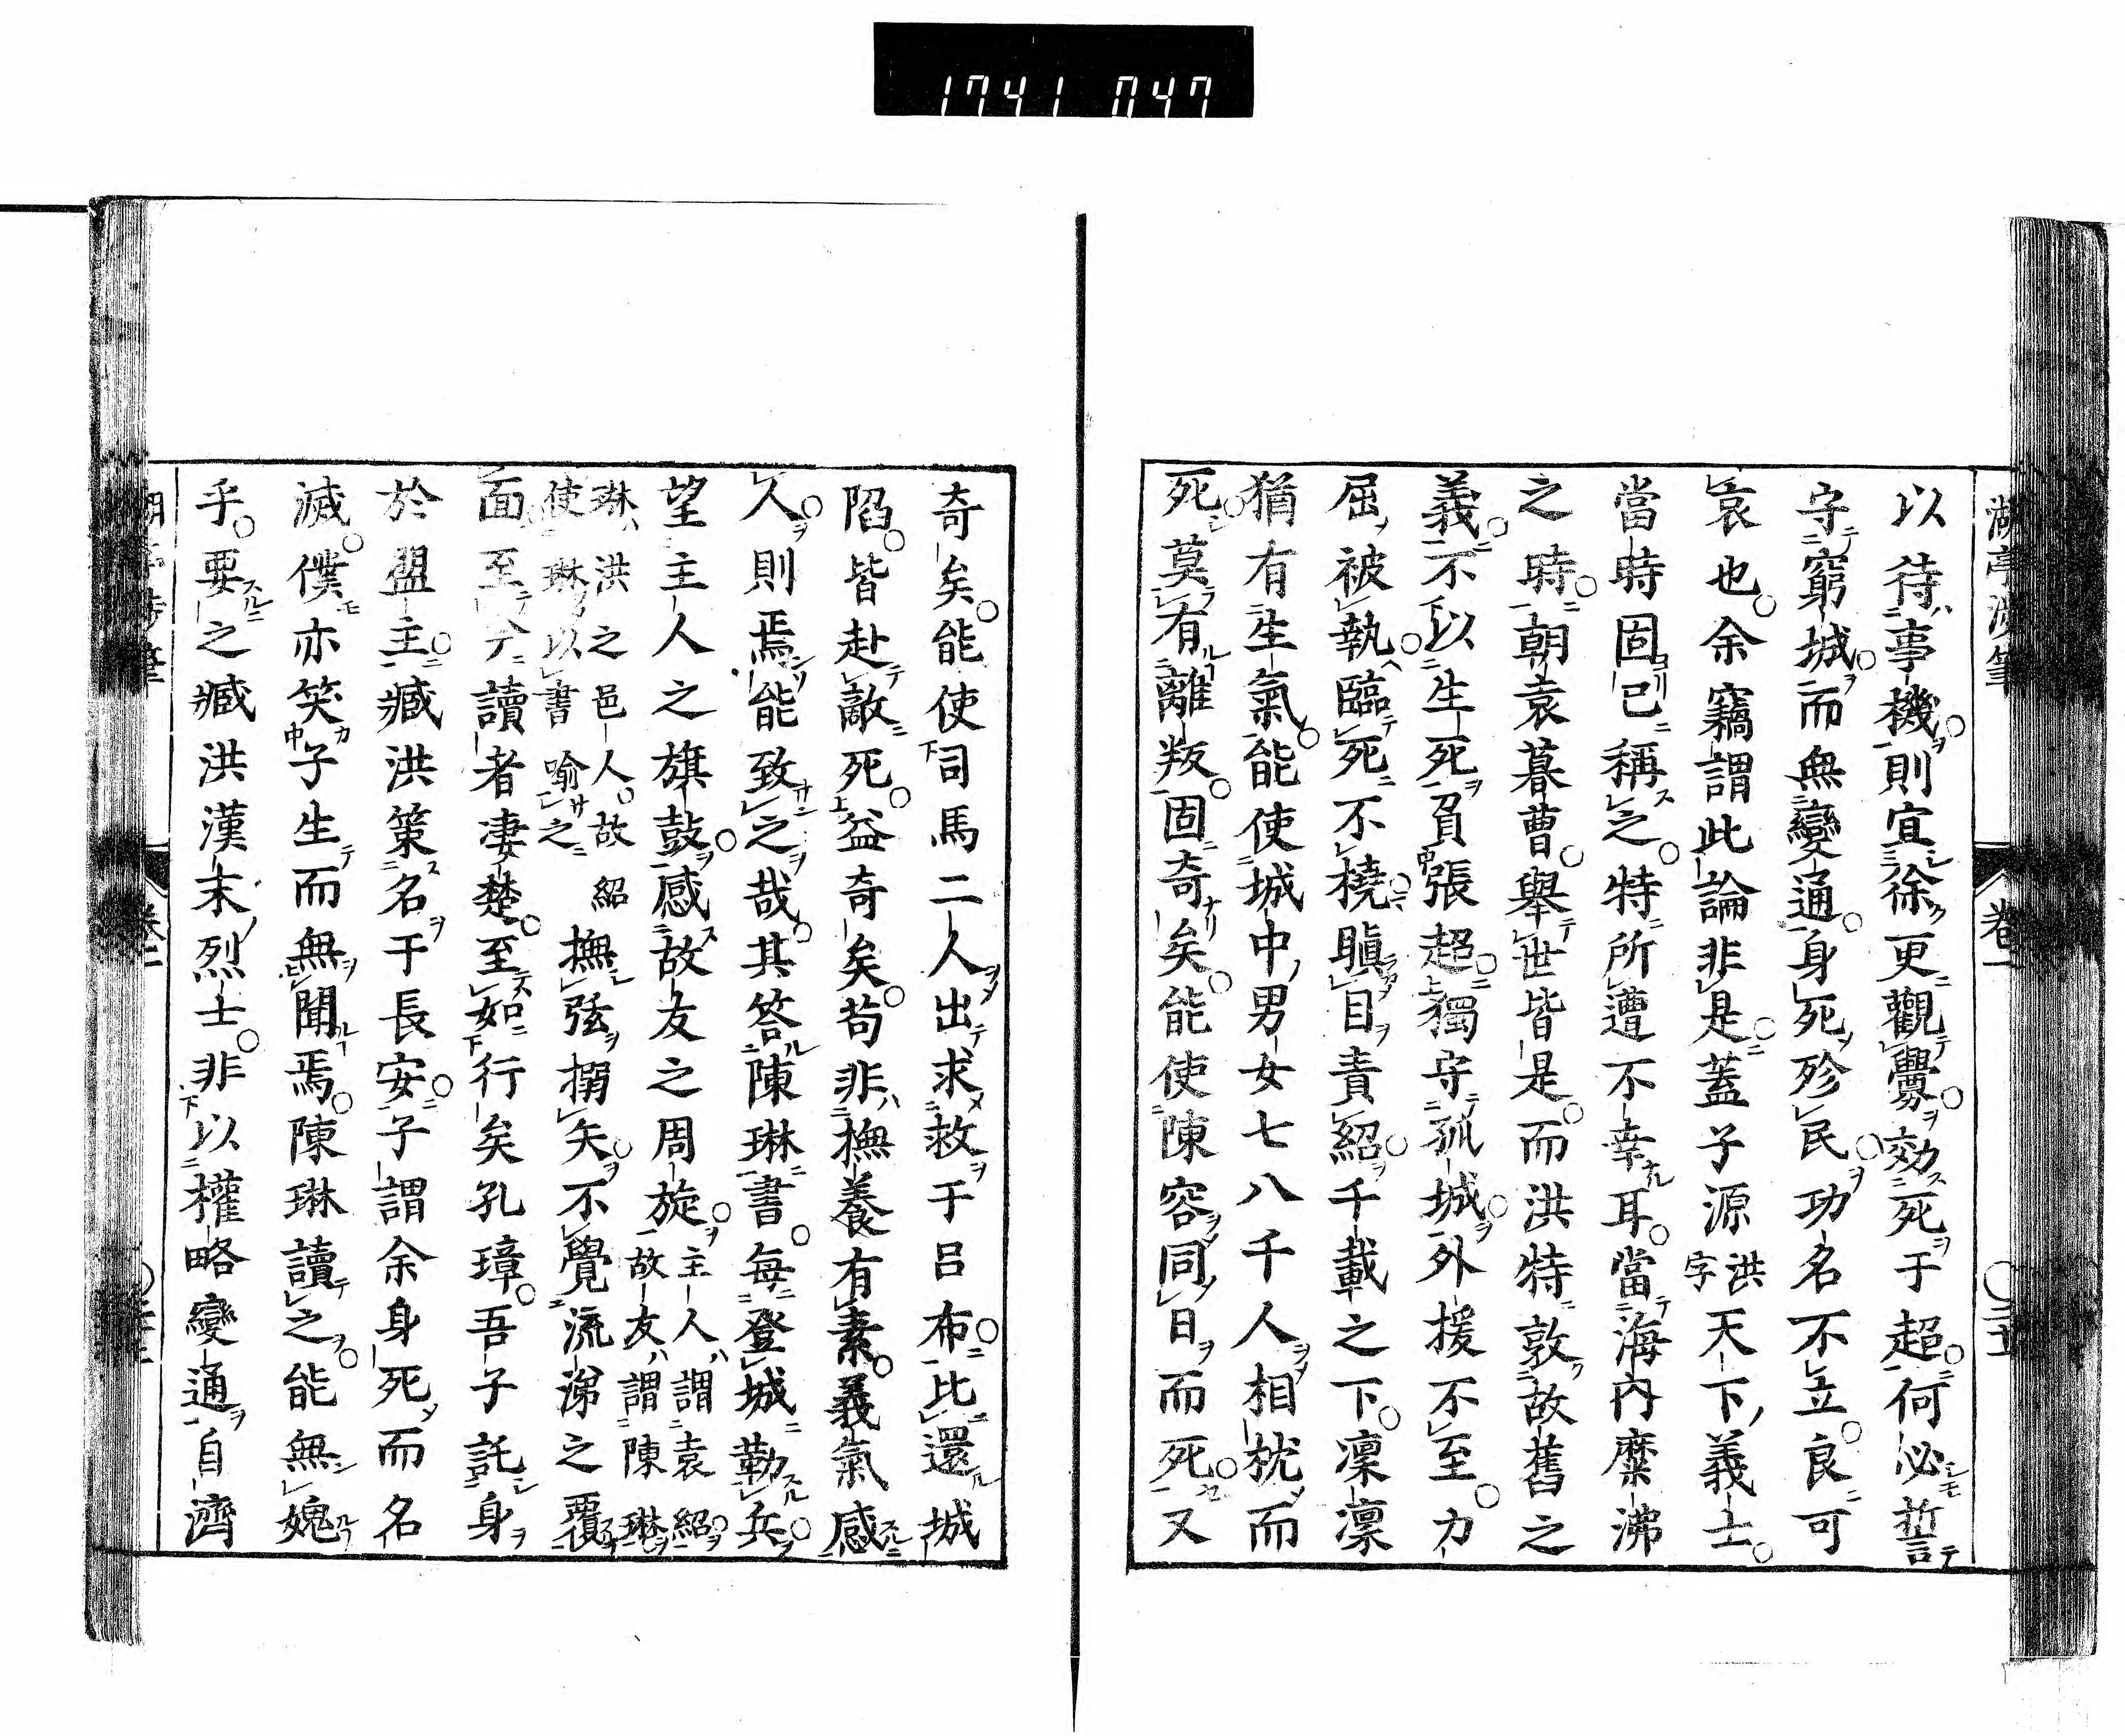 1741 047
湖亭渉筆
卷一
以待事機則宜徐更觀釁効死于超何必誓
守窮城而無變通身死殄民功名不立良可
哀也余竊謂此論非是蓋子源洪字天下義士
當時固已稱之特所遭不幸耳當海内糜沸
之時朝袁暮曹舉世皆是而洪特敦故舊之
義不以生死負張超獨守孤城外援不至力
屈被執臨死不撓瞋目責紹千載之下凜凜
猶有生氣能使城中男女七八千人相枕而
死莫有離叛固奇矣能使陳容同日而死又
奇矣能使司馬二人出求救于呂布比還城
陷皆赴敵死益奇矣苟非撫養有素義氣感
人則焉能致之哉其答陳琳書每登城勒兵
望主人之旗鼓感故友之周旋主人謂袁紹故友謂陳琳
琳洪之邑人故紹使琳以書喻之撫弦搦矢不覺流涕之覆
面至今讀者凄楚至如行矣孔璋吾子託身
於盟主臧洪策名于長安子謂余身死而名
滅僕亦笑子生而無聞焉陳琳讀之能無媿
乎要之臧洪漢末烈士非以權略變通自濟